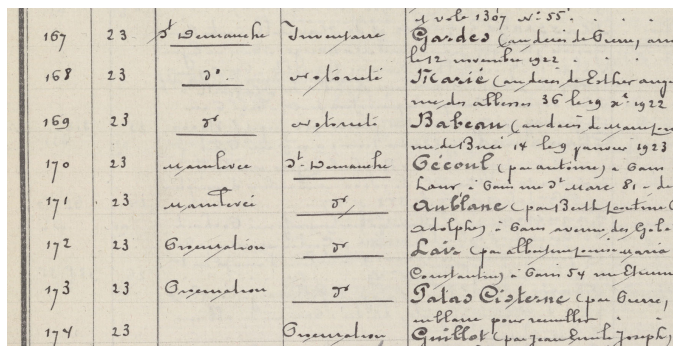 1 vole 1307 n° 55
167 23 dt Demanche Inventaire Gardes (au décès de Pierre, arr
le 12 novembre 1922
168 23 do notoriété Marié (au décès de Esther
rue des abbesses 36 le 29 Xe 1922
169 23 do notoriété Babeau (au décès de
rue de Buci 14 le 9 janvier 1923
170 23 Mainlevée dt Demanche Gécoul (par antoine) à Paris
à Paris rue St Marc 81 - de
171 23 Mainlevée do (par Berth
adolphe) à Paris avenue des Gobe
172 23 Procuration do Lair (par albertine Louise Maria
Constantine) à Paris 54 rue Etienne
173 23 Procuration do Patas Cisterne (par Pierre,
en blanc pour recueillir
174 23 Procuration Guillot (par Jean Emile Joseph)